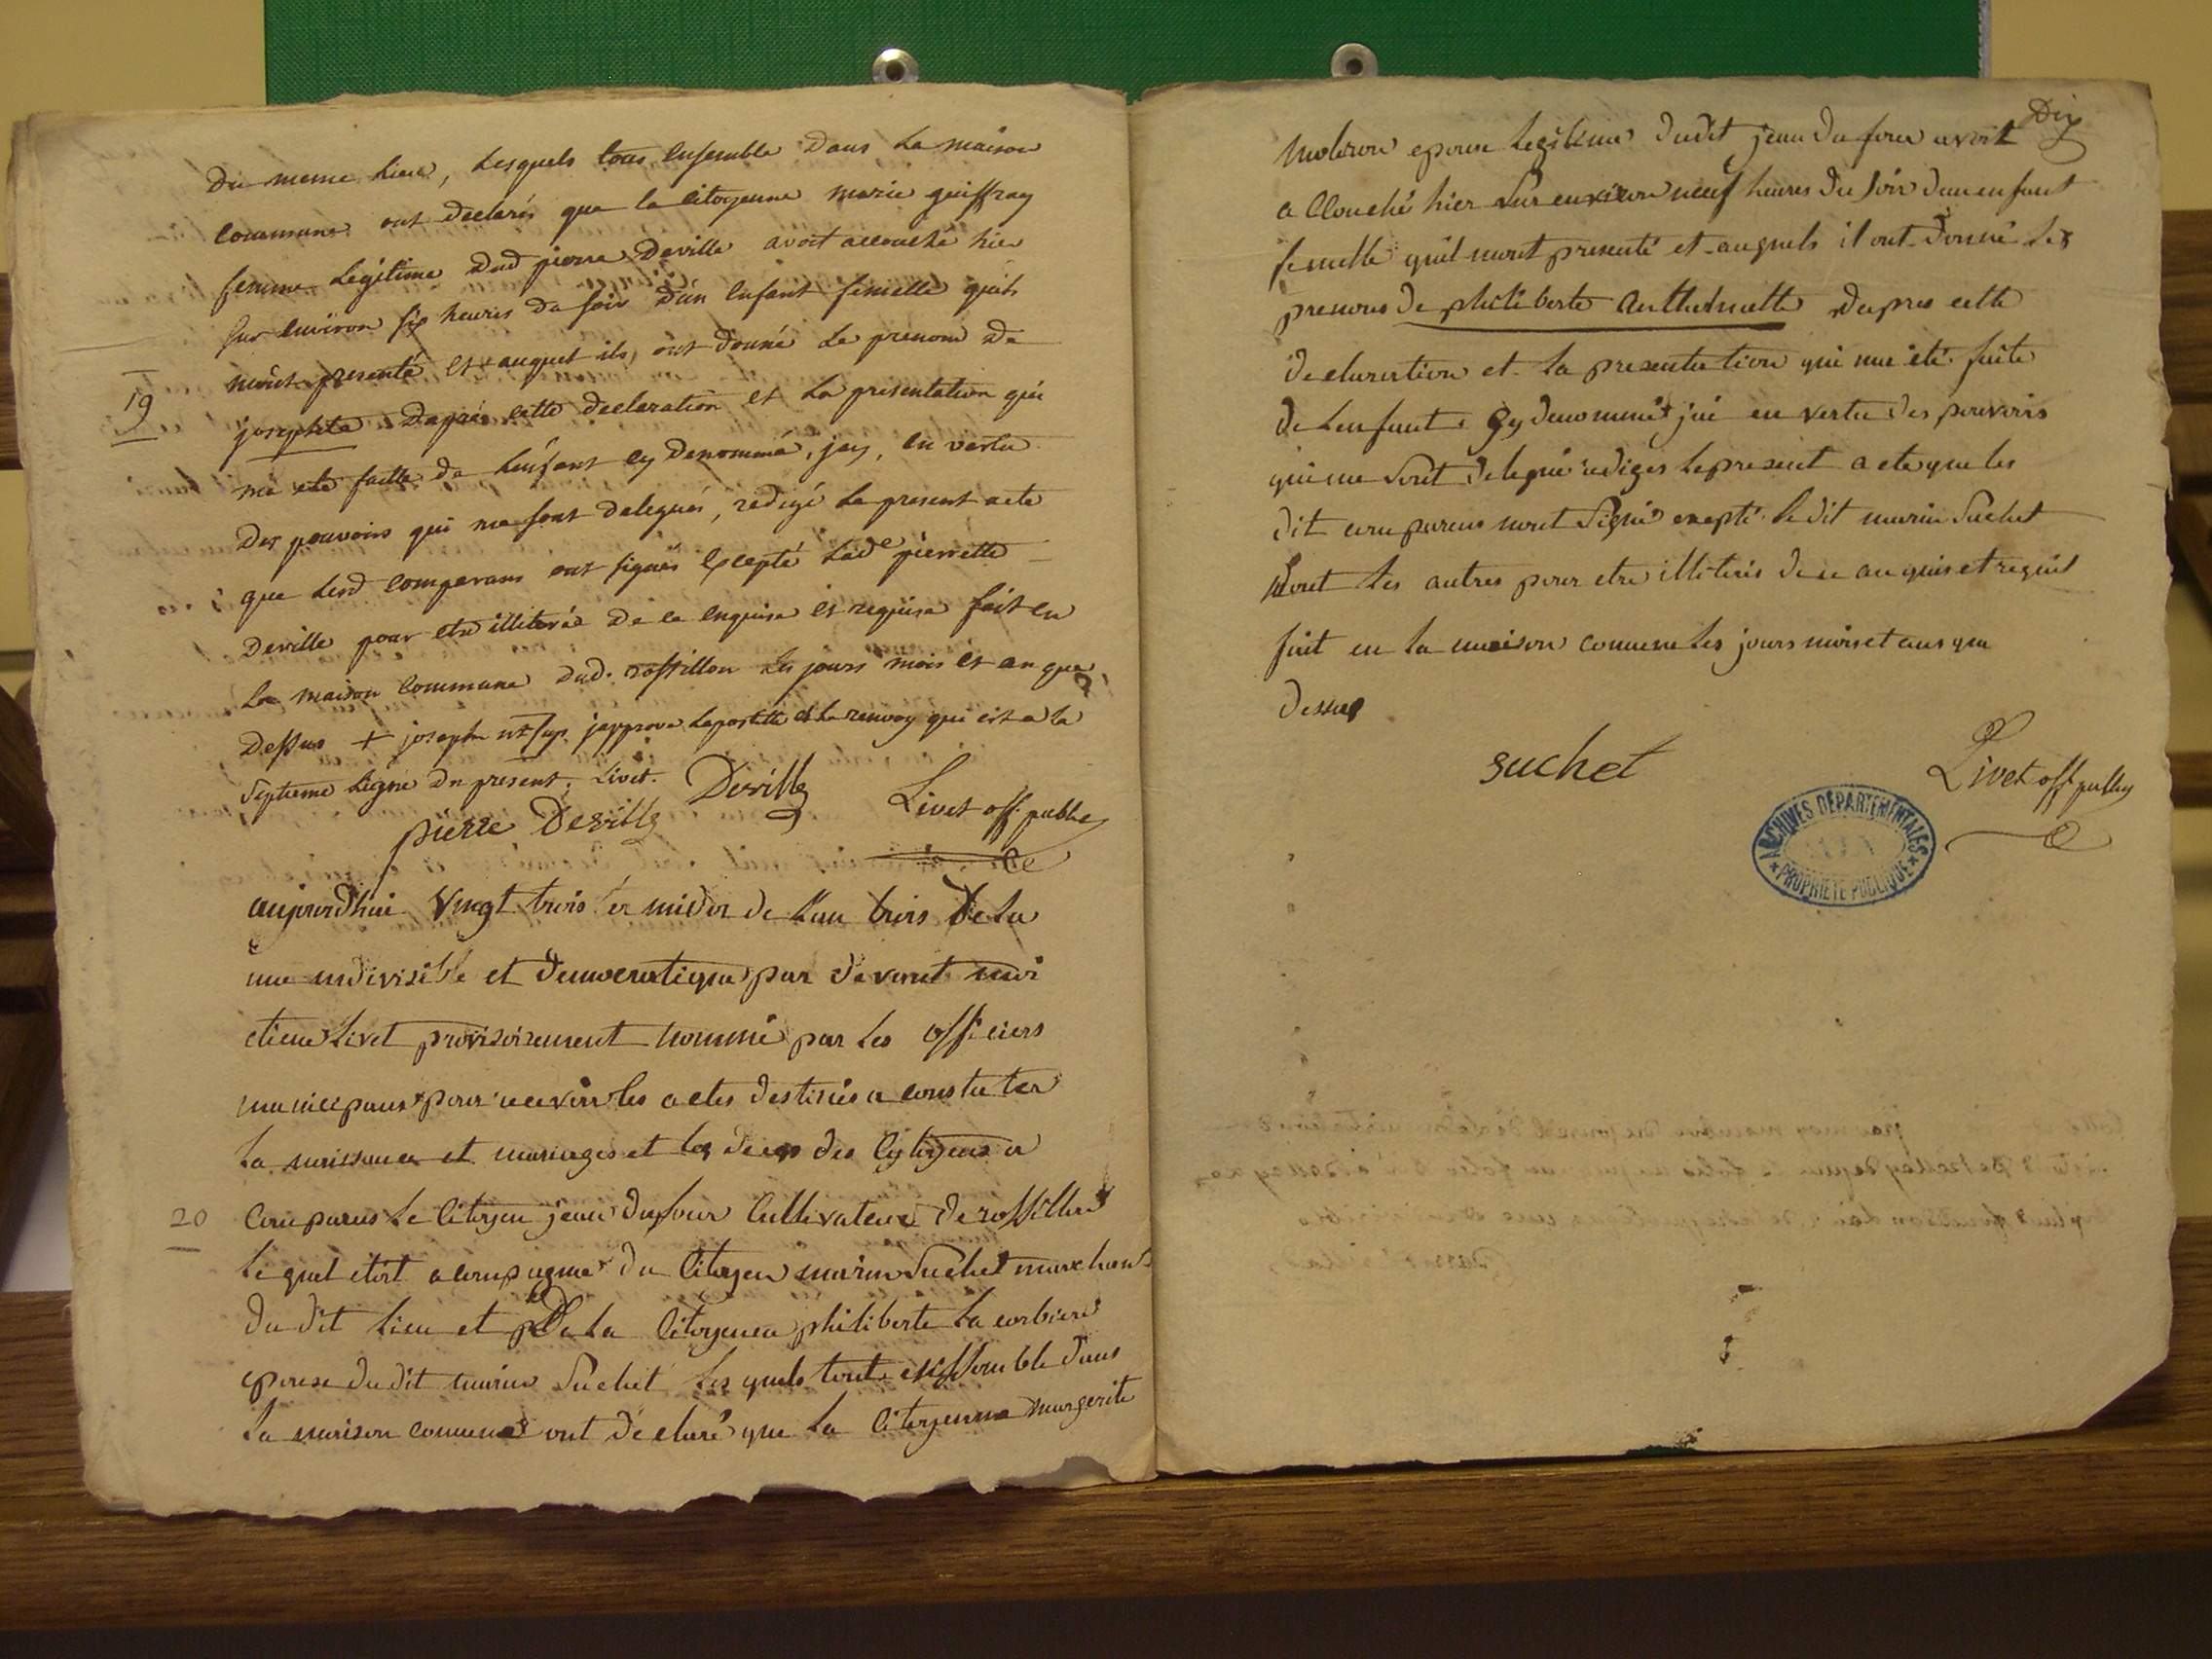 du meme lieu, Lesquels tous ensemble dans La maison
commune ont declarés que la Citoyenne marie geiffray
femme Legitime dud pierre Deville avoit accouché hier
sur environ six heures du soir d'un enfant femelle quils
mont presenté et auquel ils ont donné Le prenom de
19
josephte Dapres cette declaration et La presentation qui
ma eté faitte de Lenfant cy denommé, jay, en vertu
Des pouvoirs qui me sont delegués, redigé Le present acte
que Lesd comparans ont signés Excepté Lade pierrette
Deville pour etre illiterée de ce enquise et requise fait en
La maison Commune dud. rossillon Les jours mois et an que
dessus + joseph japprove Lapostille et Le renvoy qui est a la
septieme Ligne du present. Livet.
pierre Deville Deville Livet off. public
aujourdhui Vingt trois termidor de Lan trois de La
une indivisible et democratique par devant moi
etiene Livet provisoirement nommé par Les officiers
municipaux pour recevoir les actes destinés a constater
La naissance et mariages et les deces des Cytoyens a
20
Comparus Le Citoyen jean Dufour Cultivateur de rossillon
Le quel etoit acompagné du Citoyen marin Suchet marchand
du dit Lieu et De La Citoyenea philiberte La corbiere
epouse du dit marin Suchet Les quels tout enssemble dans
La maison comune ont declaré que La Citoyenne margerite
Dix
Moliron epouse Legitime dudit jean Dufour avoit
a Clouché hier sur environ neuf heures du soir dun enfant
femelle quil mont presenté et auquels il ont donné Les
prenoms de philiberte Anthelmette dapres cette
declaration et La presentation qui ma eté faite
de Lenfant Cy denommé jai en vertu des pouvoirs
qui me sont delegué rediges Le present acte que les
dit comparens mont signé exepté Le dit marin Suchet
non Les autres pour etre illiterés de ce anquis et requis
fait en La maison comune Les jours mois et ans que
dessus
suchet
Livet off public
ARCHIVES DÉPARTEMENTALES
AIN
PROPRIÉTÉ PUBLIQUE